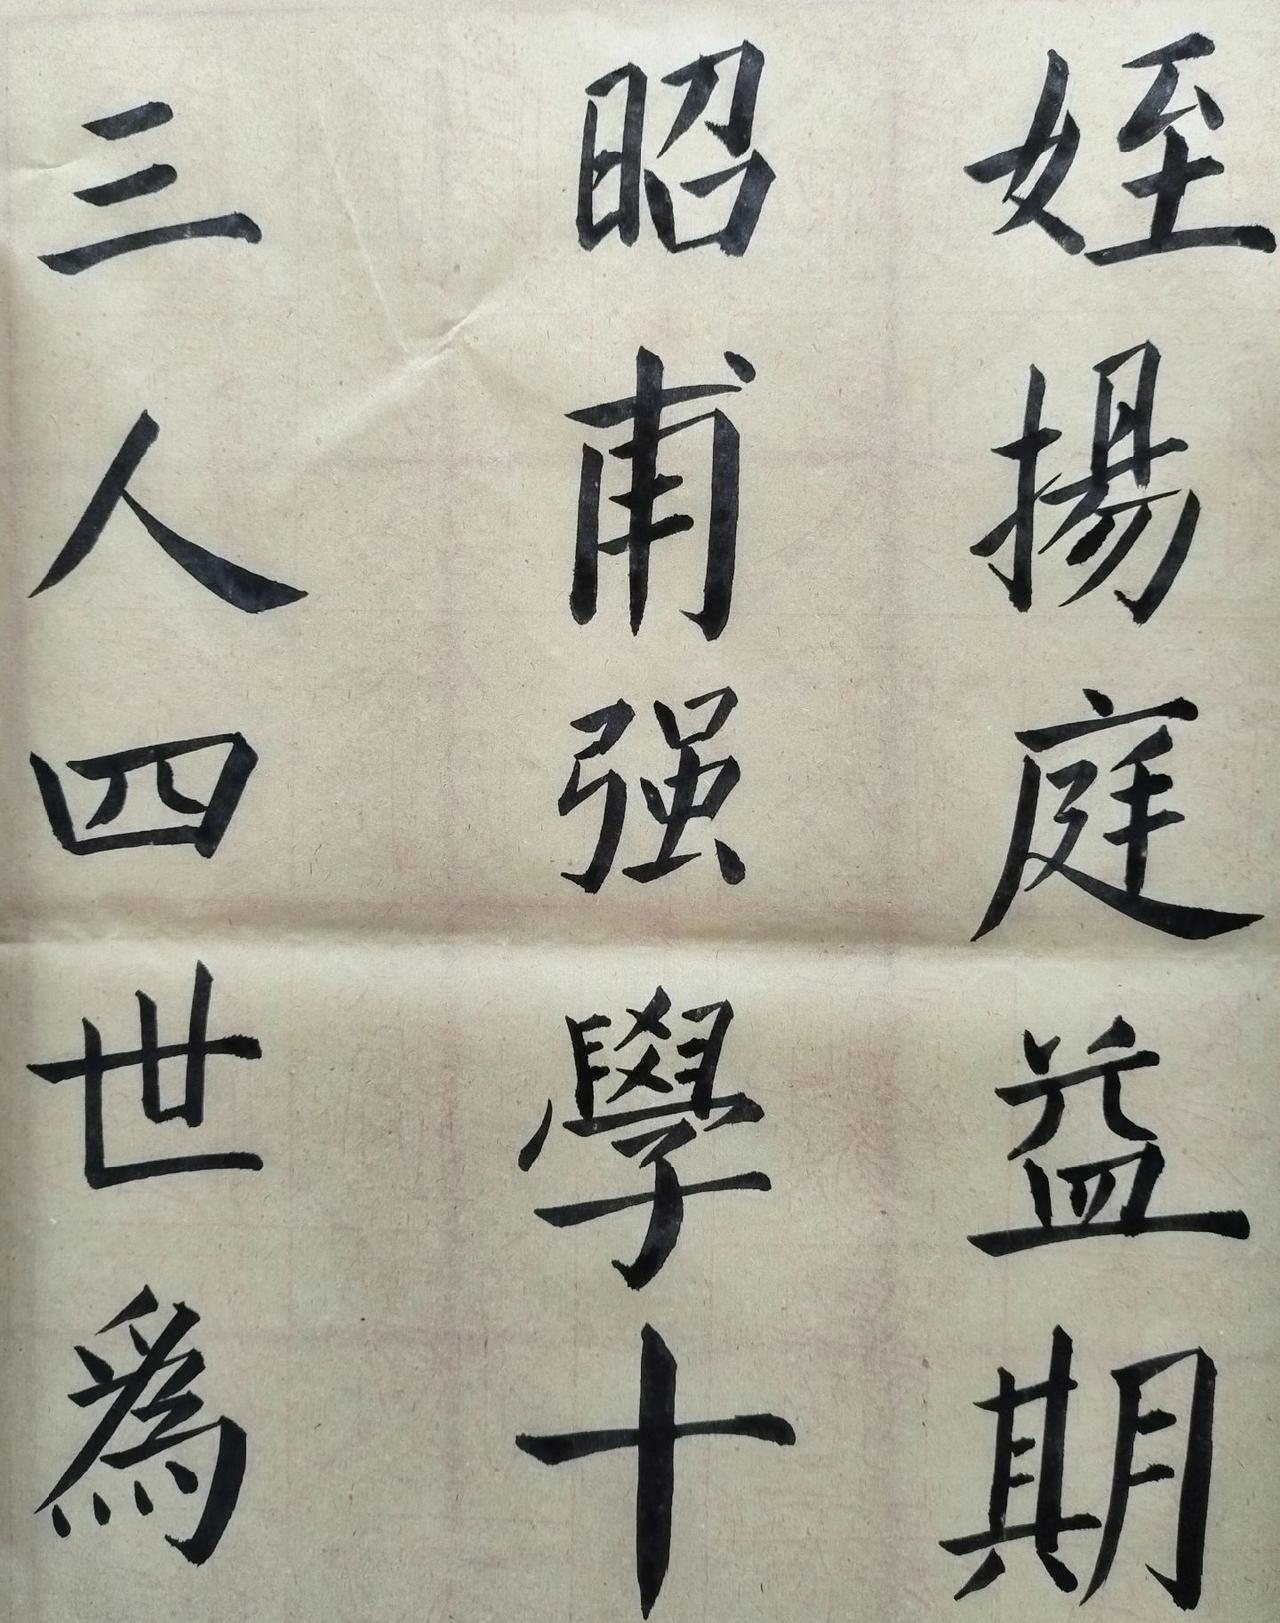 姪揚庭益期
昭甫强學十
三人四世為